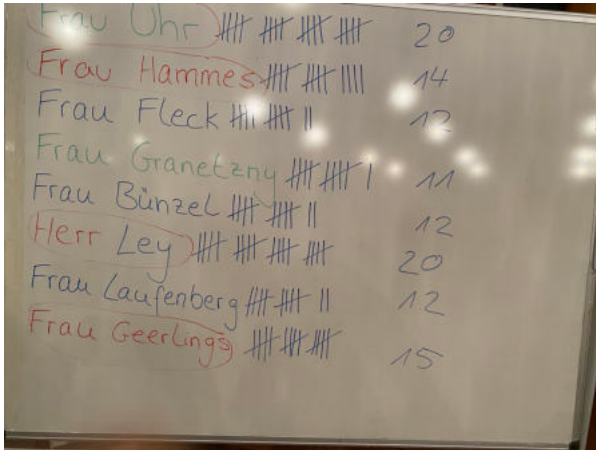 Frau Uhr 20
Frau Hammes 14
Frau Fleck 12
Frau Granetzny 11
Frau Bünzel 12
Herr Ley 20
Frau Laufenberg 12
Frau Geerlings 15